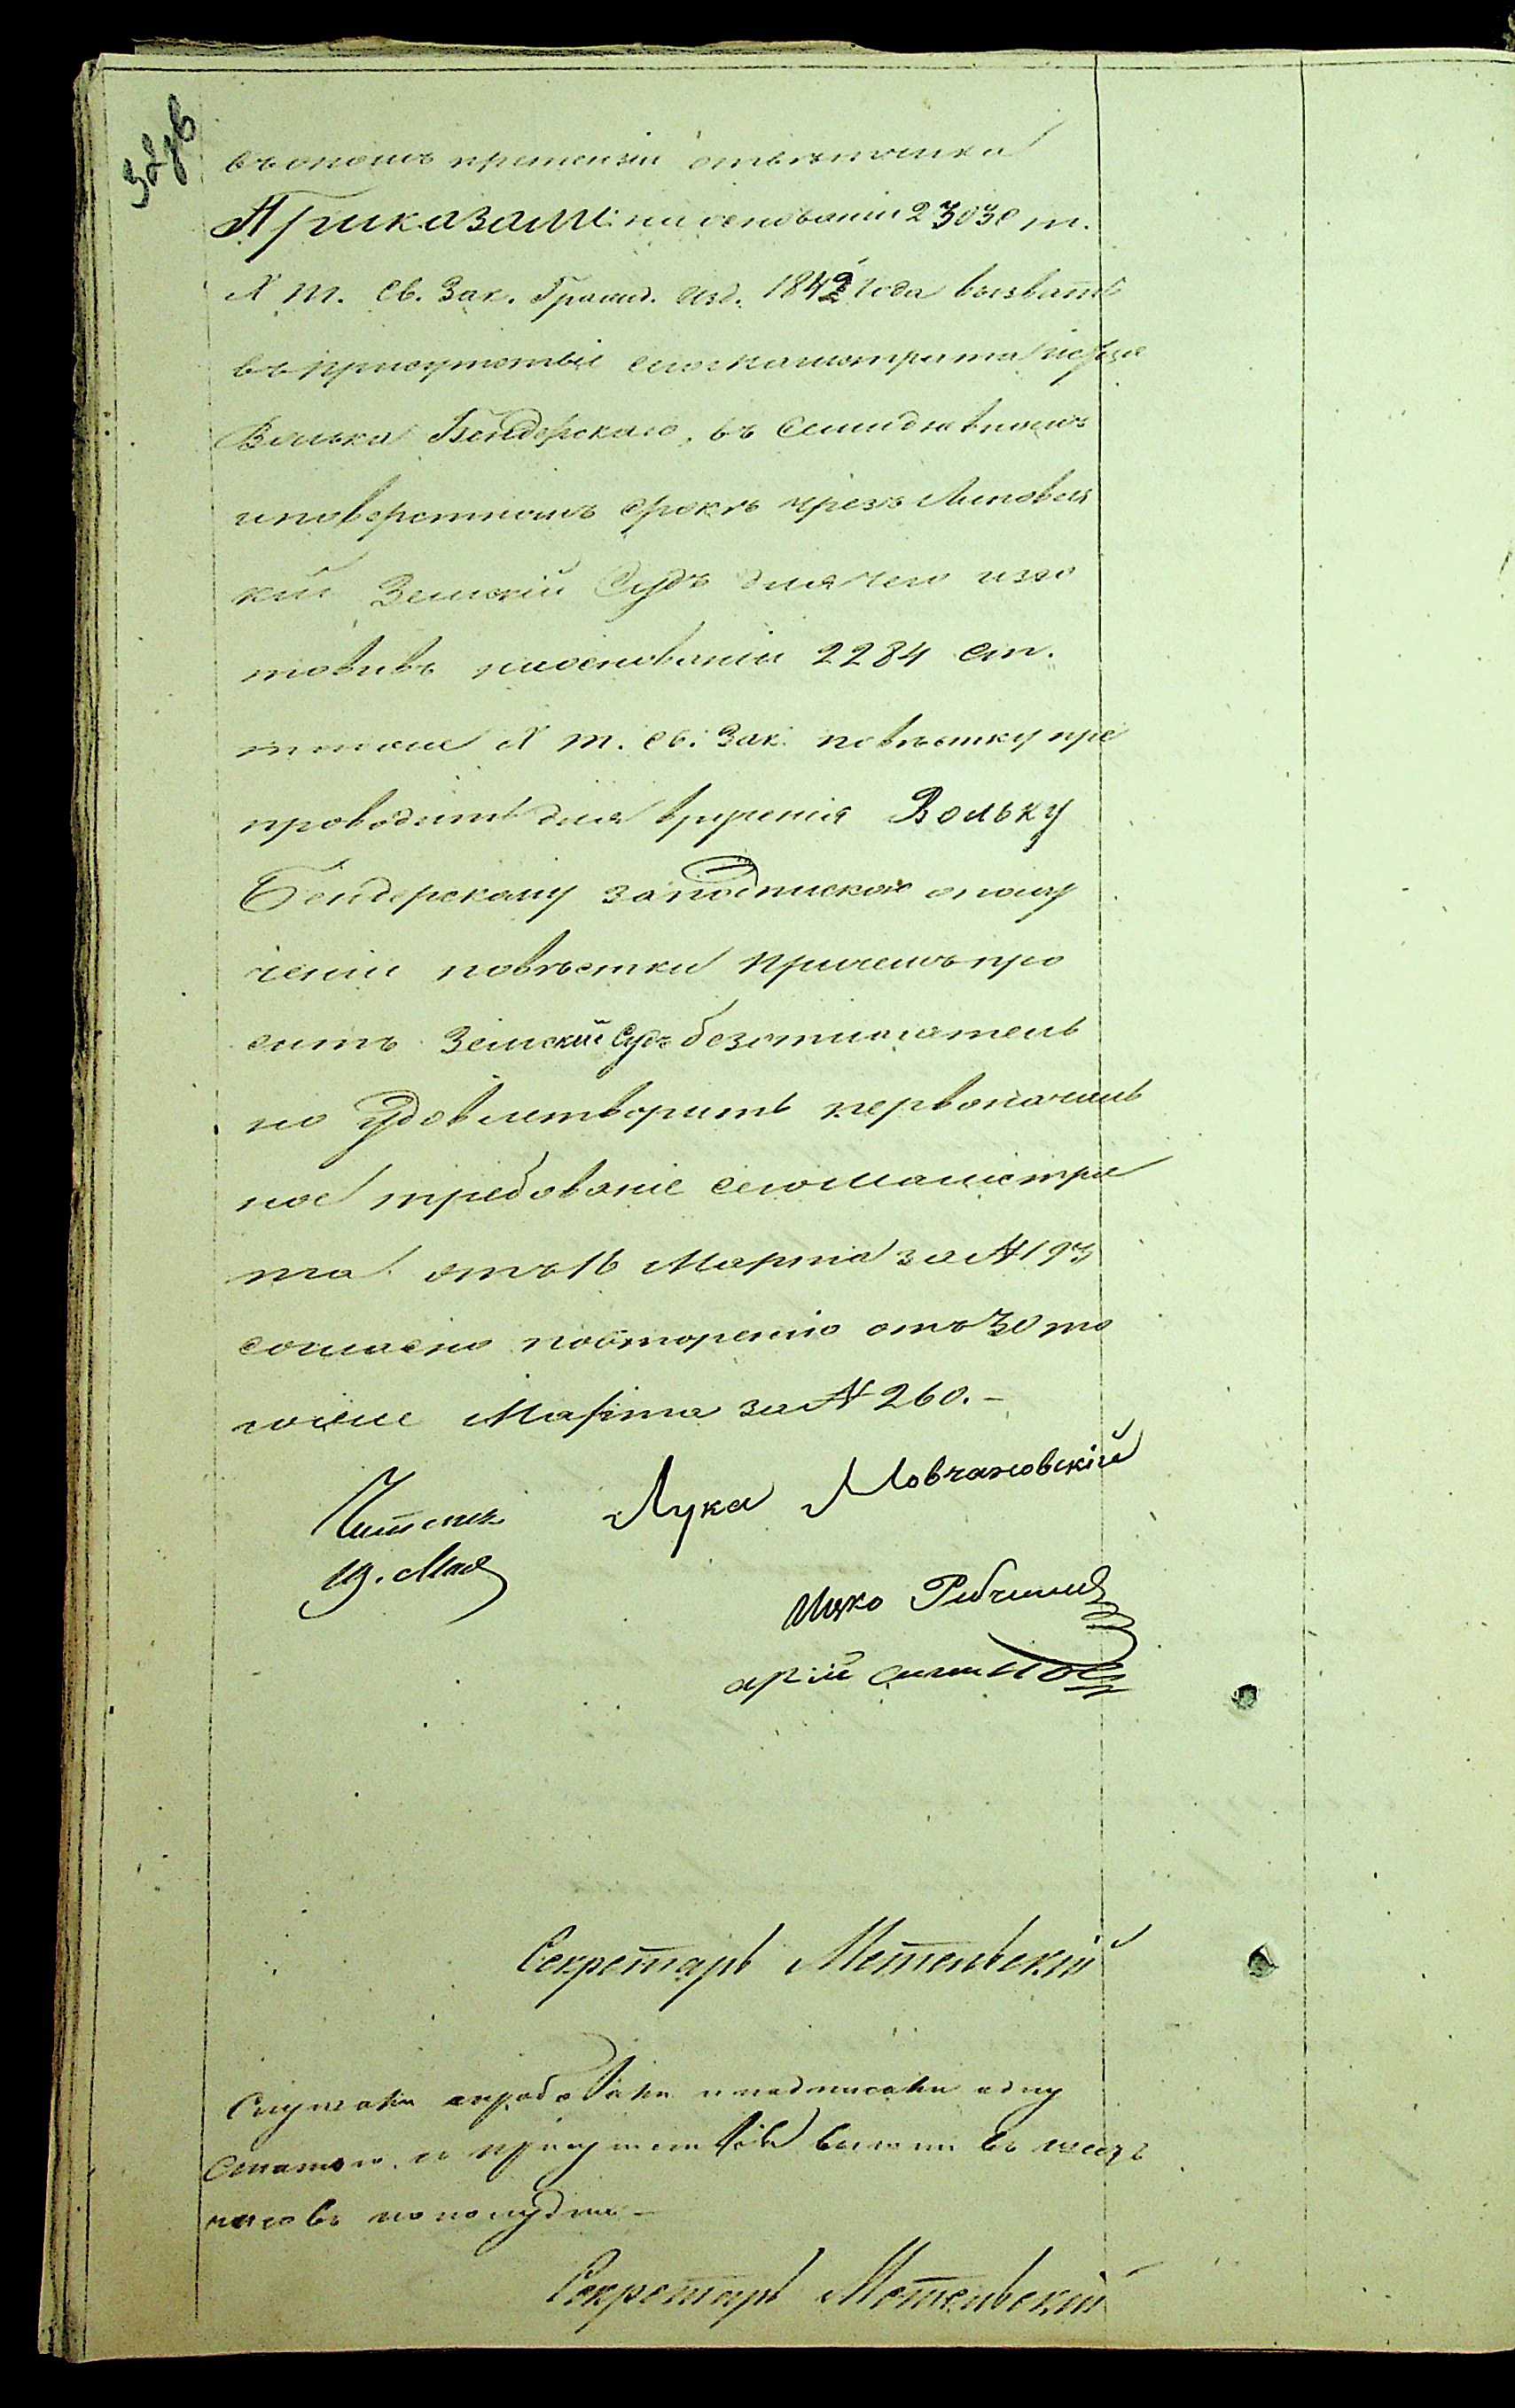 въ ономъ претензіи отвѣтчика
Приказали: на основаніи 2303й ст.
X т. Св. Зак. Гражд. изд. 1842 года вызвать
въ присутствіе сего магистрата истца
Волька Бендерскаго, въ семидневномъ
и поверстномъ срокѣ чрезъ Липовец
кій Земскій Судъ для чего изго
товивъ на основаніи 2284 ст.
того же X т. Св. Зак. повѣстку пре
проводить для врученія Вольку
Бендерскому за подпискою о полу
ченіи повѣстки причемъ про
сить Земскій Судъ безотлагатель
но удовлетворить первоначаль
ное требованіе сего магистра
та отъ 16 Марта за № 193
согласно повторенію отъ 30 то
гоже Марта за № 260.—
Читалъ Лука Мовчановскій
19. Мая
Ицко
арій
Секретарь Метельскій
Слушали опробовали и подписали одну
статью. а присутствія вышли въ часъ
часовъ по полудни—
Секретарь Метельскій